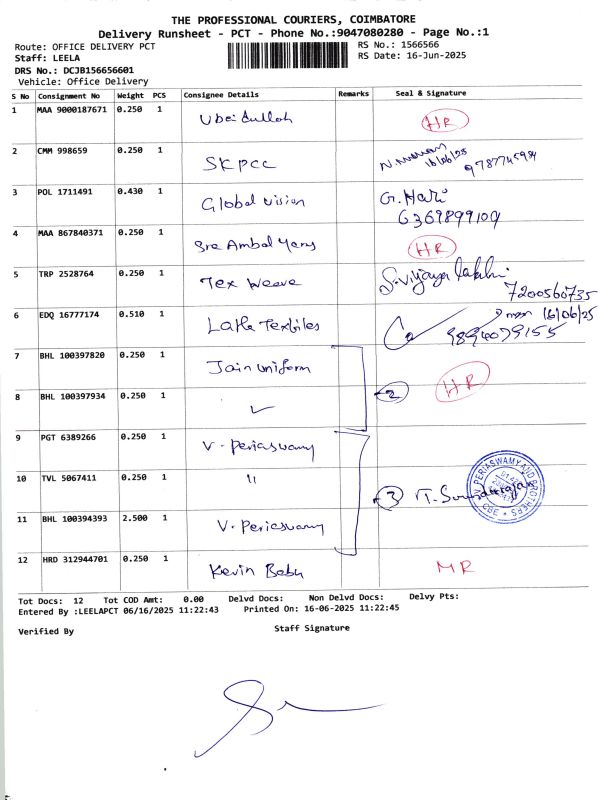 THE PROFESSIONAL COURIERS, COIMBATORE
Delivery Runsheet - PCT - Phone No.:9047080280 - Page No.:1
Route: OFFICE DELIVERY PCT RS No.: 1566566
Staff: LEELA RS Date: 16-Jun-2025
DRS No.: DCJB156656601
Vehicle: Office Delivery
S No Consignment No Weight PCS Consignee Details Remarks Seal & Signature
1 MAA 9000187671 0.250 1 Ubaidulloh HR
2 CMM 998659 0.250 1 SKPCC 16/06/25
3 POL 1711491 0.430 1 Global Vision G. Hari
6369899109
4 MAA 867840371 0.250 1 Sre Ambal Yarns HR
5 TRP 2528764 0.250 1 Tex Weave S. Vijaya lakshmi
7200560735
6 EDQ 16777174 0.510 1 Latha Textiles 16/06/25
9894079155
7 BHL 100397820 0.250 1 Jain uniform
8 BHL 100397934 0.250 1 ✓ 2 HR
9 PGT 6389266 0.250 1 V. Periaswamy
10 TVL 5067411 0.250 1 " 3 T. Soundarrajan
11 BHL 100394393 2.500 1 V. Periaswamy
12 HRD 312944701 0.250 1 Kevin Babu MR
Tot Docs: 12 Tot COD Amt: 0.00 Delvd Docs: Non Delvd Docs: Delvy Pts:
Entered By :LEELAPCT 06/16/2025 11:22:43 Printed On: 16-06-2025 11:22:45
Verified By Staff Signature